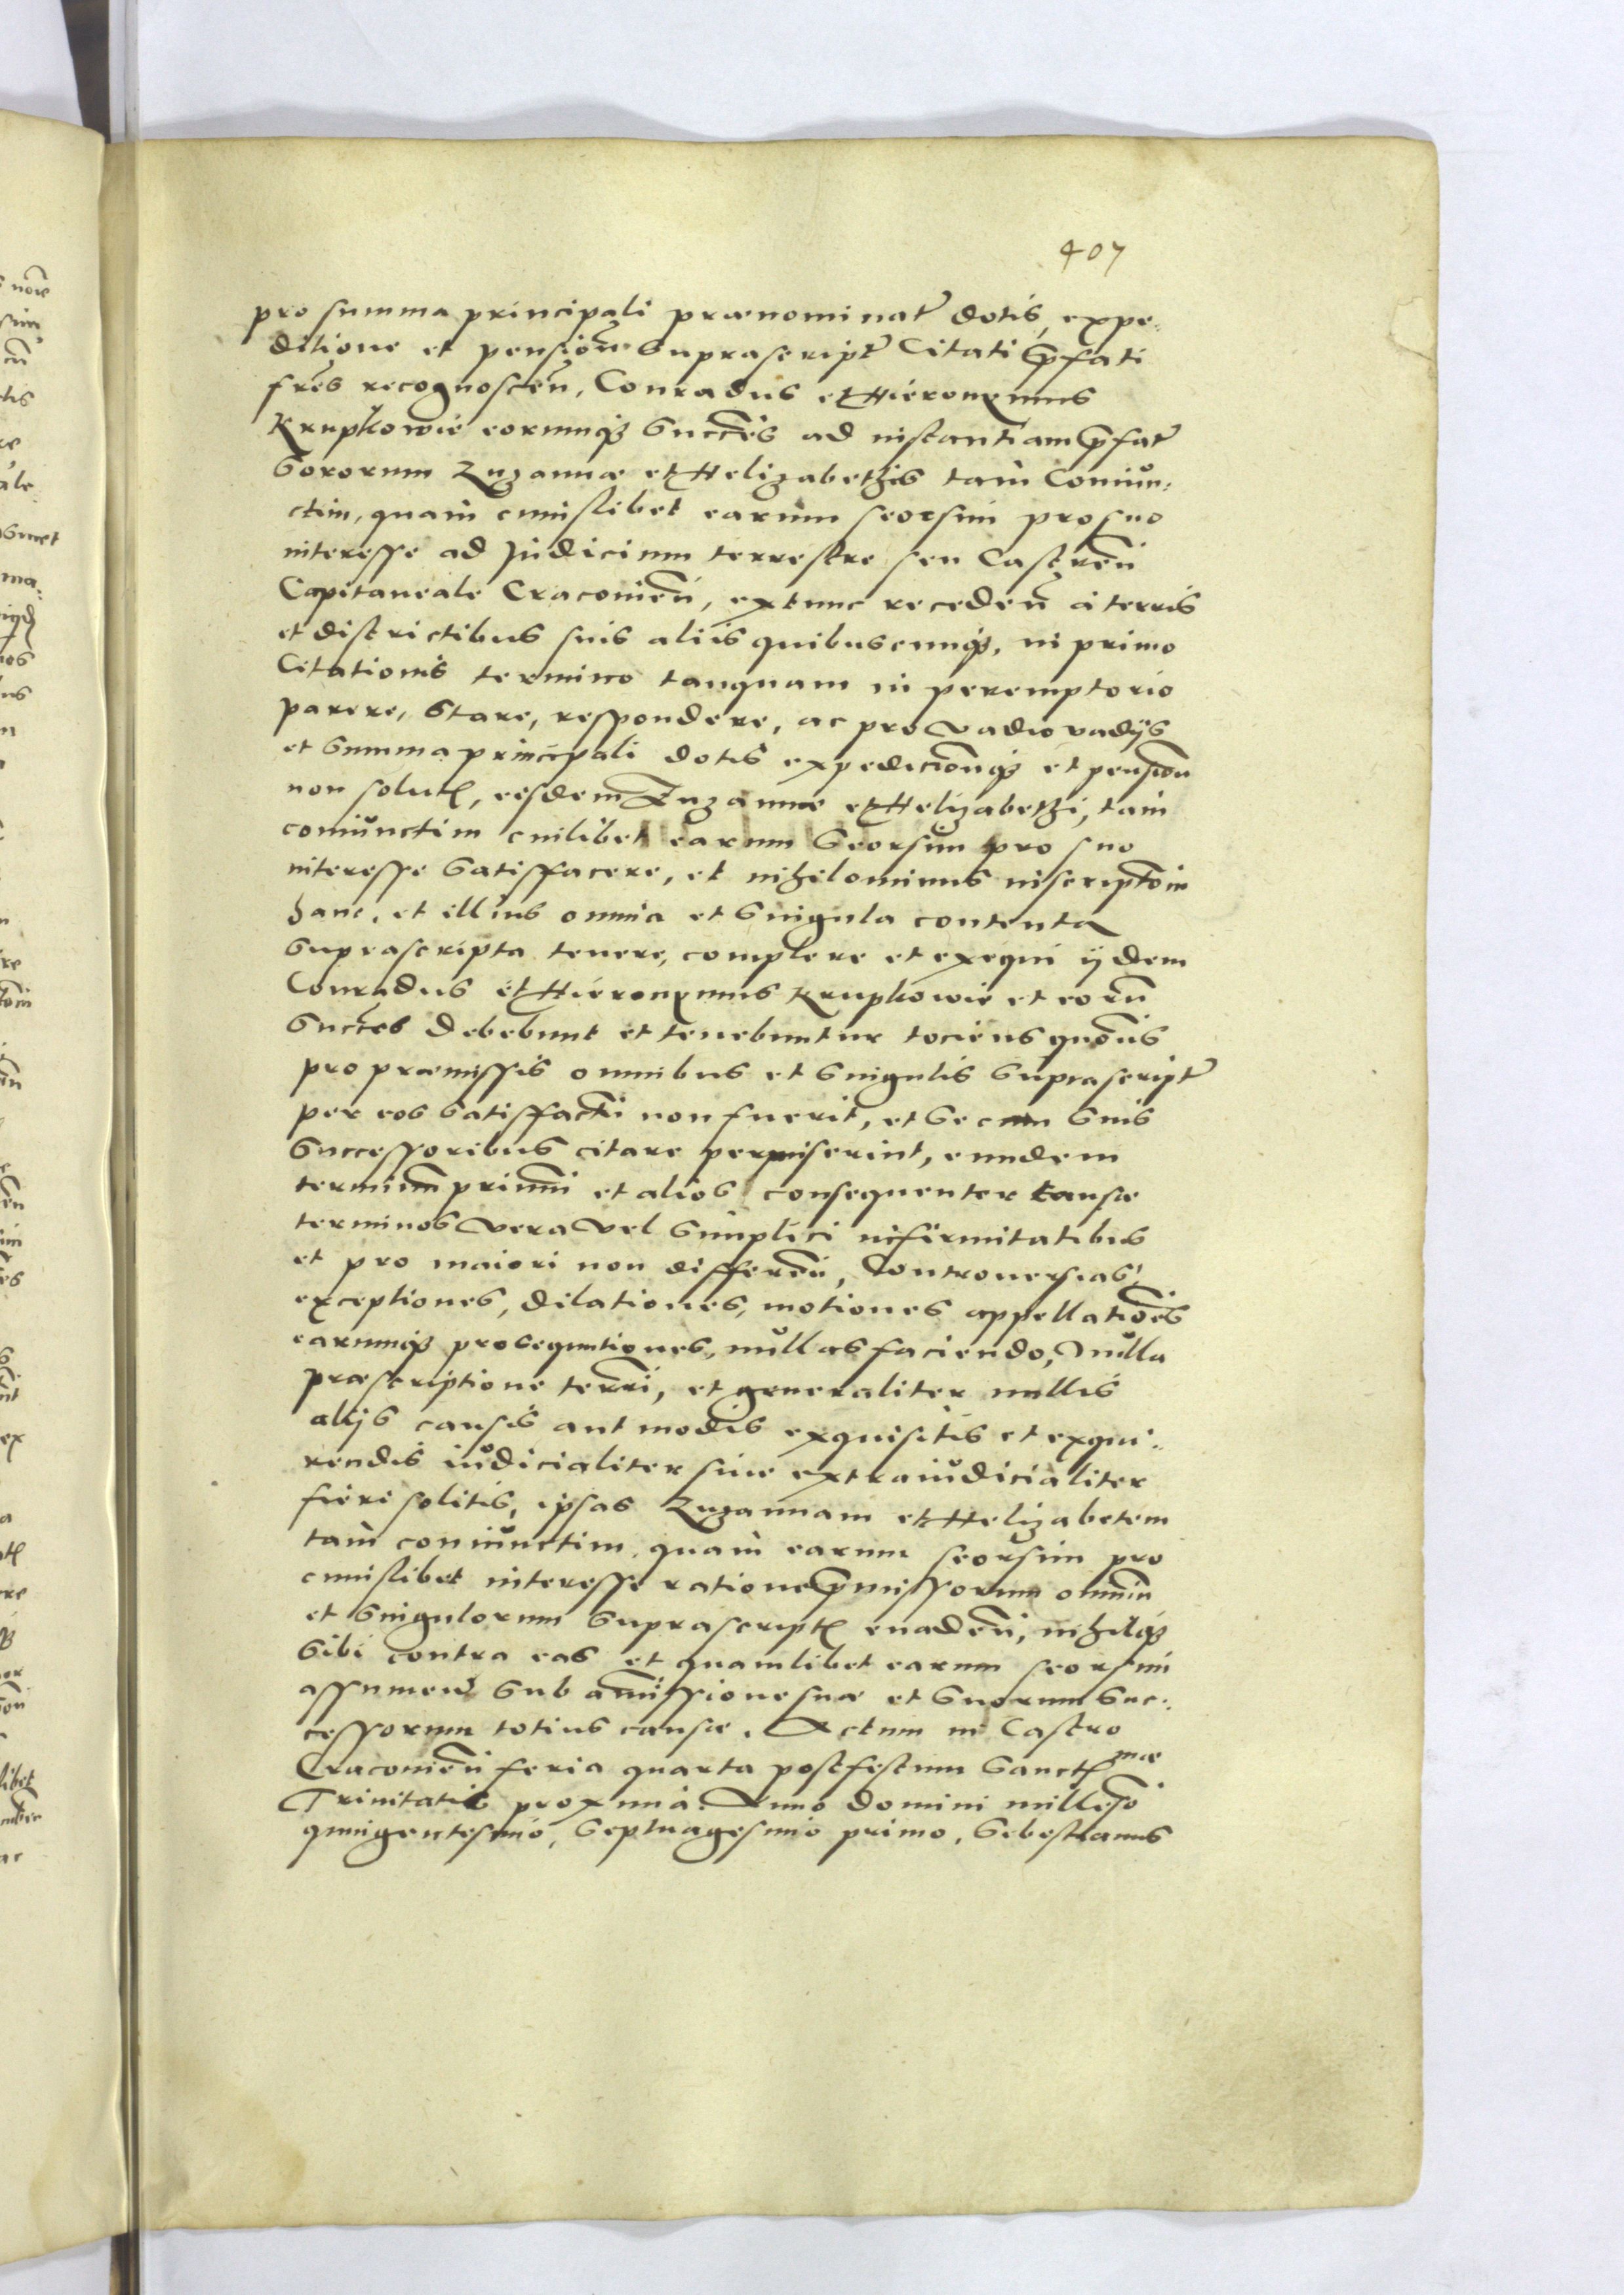 407
pro summa principali prænominat dotis, expe-
ditione et pension suprascript Citati p̱fati
fres recognoscen, Conradus et Hieronymus
Krupkowie eorumq succes ad instantiam p̱fat
Sororum Zuzannæ et Helizabethis tam Coniun-
ctim, quam cuiuslibet earum seorsim pro suo
interesse ad Judicium terrestre seu Castren
Capitaneale Cracovien, extunc receden a terris
et districtibus suis aliis quibuscunq, in primo
Citationis termino tanquam in peremptorio
parere, stare, respondere, ac pro vadio vadijs
et summa principali dotis expedicionq et pension
non solut, eisdem Zuzannæ et Helizabethi, tam
coniunctim cuilibet earum seorsim pro suo
interesse satisfacere, et nihilominus inscriptom
hanc, et illius omnia et singula contenta
suprascripta tenere, complere et exequi ijdem
Conradus et Hieronymus Krupkowie et eorum
succes debebunt et tenebuntur tociens quociens
pro præmissis omnibus et singulis suprascript
per eos satisfactu non fuerit, et se cum suis
successoribus citare permiserint, eundem
terminum primum et alios consequenter causæ
terminos vera vel simplici infirmitatibus
et pro maiori non differen, Controuersias,
exceptiones, dilationes, motiones appellationes
earumq prosequutiones, nullas faciendo, Nulla
præscriptione terri, et generaliter nullis
alijs causis aut modis exquisitis et exqui-
rendis iudicialiter siue extraiudicialiter
fieri solitis, ipsas Zuzannam et Helizabetem
tam coniunctim, quam earum seorsim pro
cuiuslibet interesse ratione p̱missorum omnium
et singulorum suprascript euaden, nihilq
sibi contra eas et quamlibet earum seorsim
assumen sub amissione suæ et suorum suc-
cessorum totius causæ. Actum in Castro
Cracovien feria quarta post festum Sanctmæ
Trinitatis proxima. Anno Domini millesimo
quingentesimo, Septuagesimo primo, Sebestianus